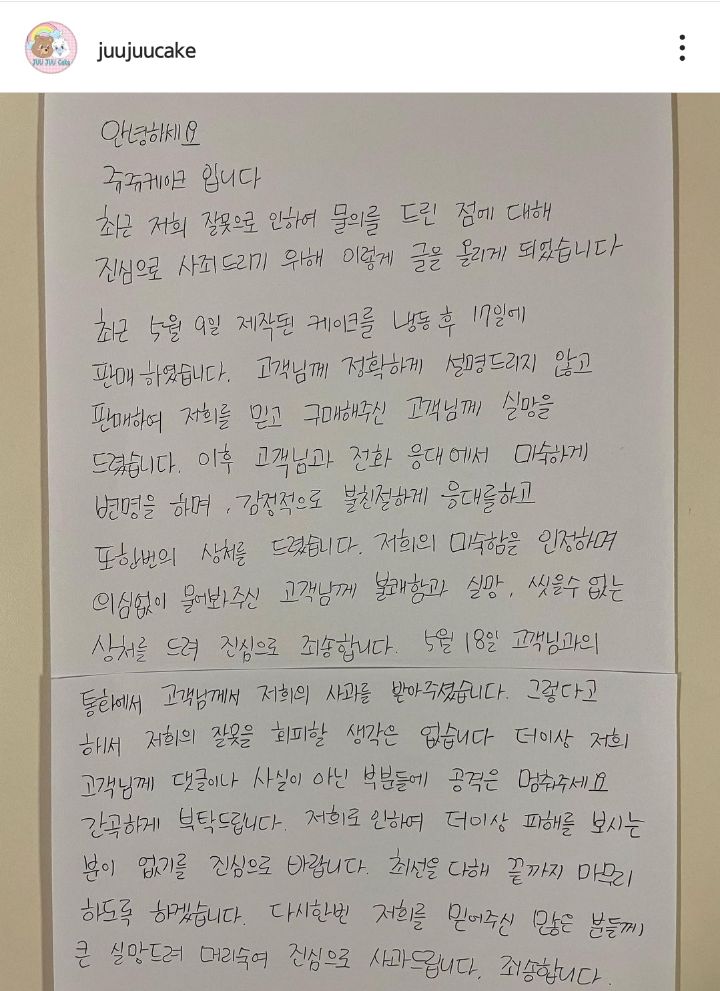 JUU JUU Cake
juujuucake
안녕하세요
쥬쥬케이크 입니다
최근 저희 잘못으로 인하여 물의를 드린 점에 대해
진심으로 사죄드리기 위해 이렇게 글을 올리게 되었습니다
최근 5월 9일 제작된 케이크를 냉동 후 17일에
판매 하였습니다. 고객님께 정확하게 설명드리지 않고
판매하여 저희를 믿고 구매해주신 고객님께 실망을
드렸습니다. 이후 고객님과 전화 응대에서 미숙하게
변명을 하며, 감정적으로 불친절하게 응대를하고
또한번의 상처를 드렸습니다. 저희의 미숙함을 인정하며
의심없이 물어봐주신 고객님께 불쾌함과 실망, 씻을수 없는
상처를 드려 진심으로 죄송합니다. 5월 18일 고객님과의
통화에서 고객님께서 저희의 사과를 받아주셨습니다. 그렇다고
해서 저희의 잘못을 회피할 생각은 없습니다 더이상 저희
고객님께 댓글이나 사실이 아닌 부분들에 공격은 멈춰주세요
간곡하게 부탁드립니다. 저희로 인하여 더이상 피해를 보시는
분이 없기를 진심으로 바랍니다. 최선을 다해 끝까지 마무리
하도록 하겠습니다. 다시한번 저희를 믿어주신 많은 분들께
큰 실망드려 머리숙여 진심으로 사과드립니다. 죄송합니다.